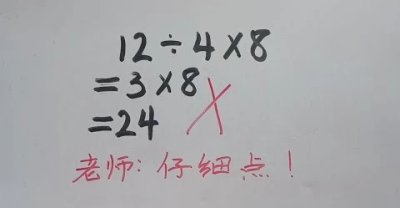 12÷4×8
=3×8
=24
老师:仔细点!